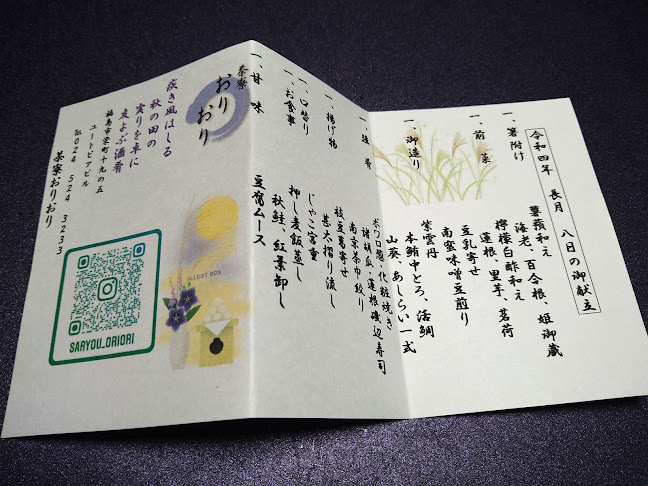 令和四年 長月 八日の御献立
一、箸附け
薯蕷和え
海老、百合根、姫御蔵
檸檬白酢和え
一、前菜
蓮根、里芋、茗荷
豆乳寄せ
南蛮味噌豆煎り
一、御造り
紫雲丹
本鮪中とろ、活鯛
山葵、あしらい一式
一、強肴
ボウロ葱・化粧焼き
諸胡瓜・蓮根磯辺寿司
南京茶巾絞り
枝豆葛寄せ
一、揚げ物
甚太摺り流し
一、口替り
じゃこ宮重
一、お食事
押し麦飯蒸し
秋鮭、紅葉卸し
一、甘味
豆腐ムース
茶寮
おり
おり
疾き風はしる
秋の田の
実りを卓に
友よぶ酒肴
福島市栄町十九の五
ユートピアビル
℡024 524 3233
茶寮おりおり
ILLUST BOX
SARYOU_ORIORI